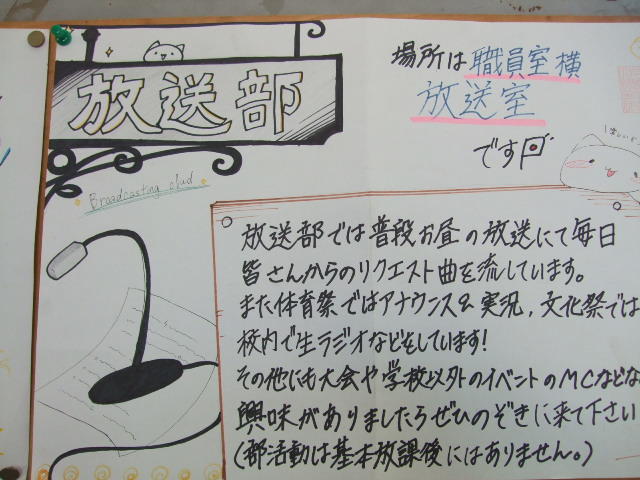 放送部
Broadcasting club
場所は職員室横
放送室
です
放送部では普段お昼の放送にて毎日
皆さんからのリクエスト曲を流しています。
また体育祭ではアナウンス&実況,文化祭では
校内で生ラジオなどをしています!
その他にも大会や学校以外のイベントのMCなどな
興味がありましたらぜひのぞきに来て下さい
(部活動は基本放課後にはありません。)